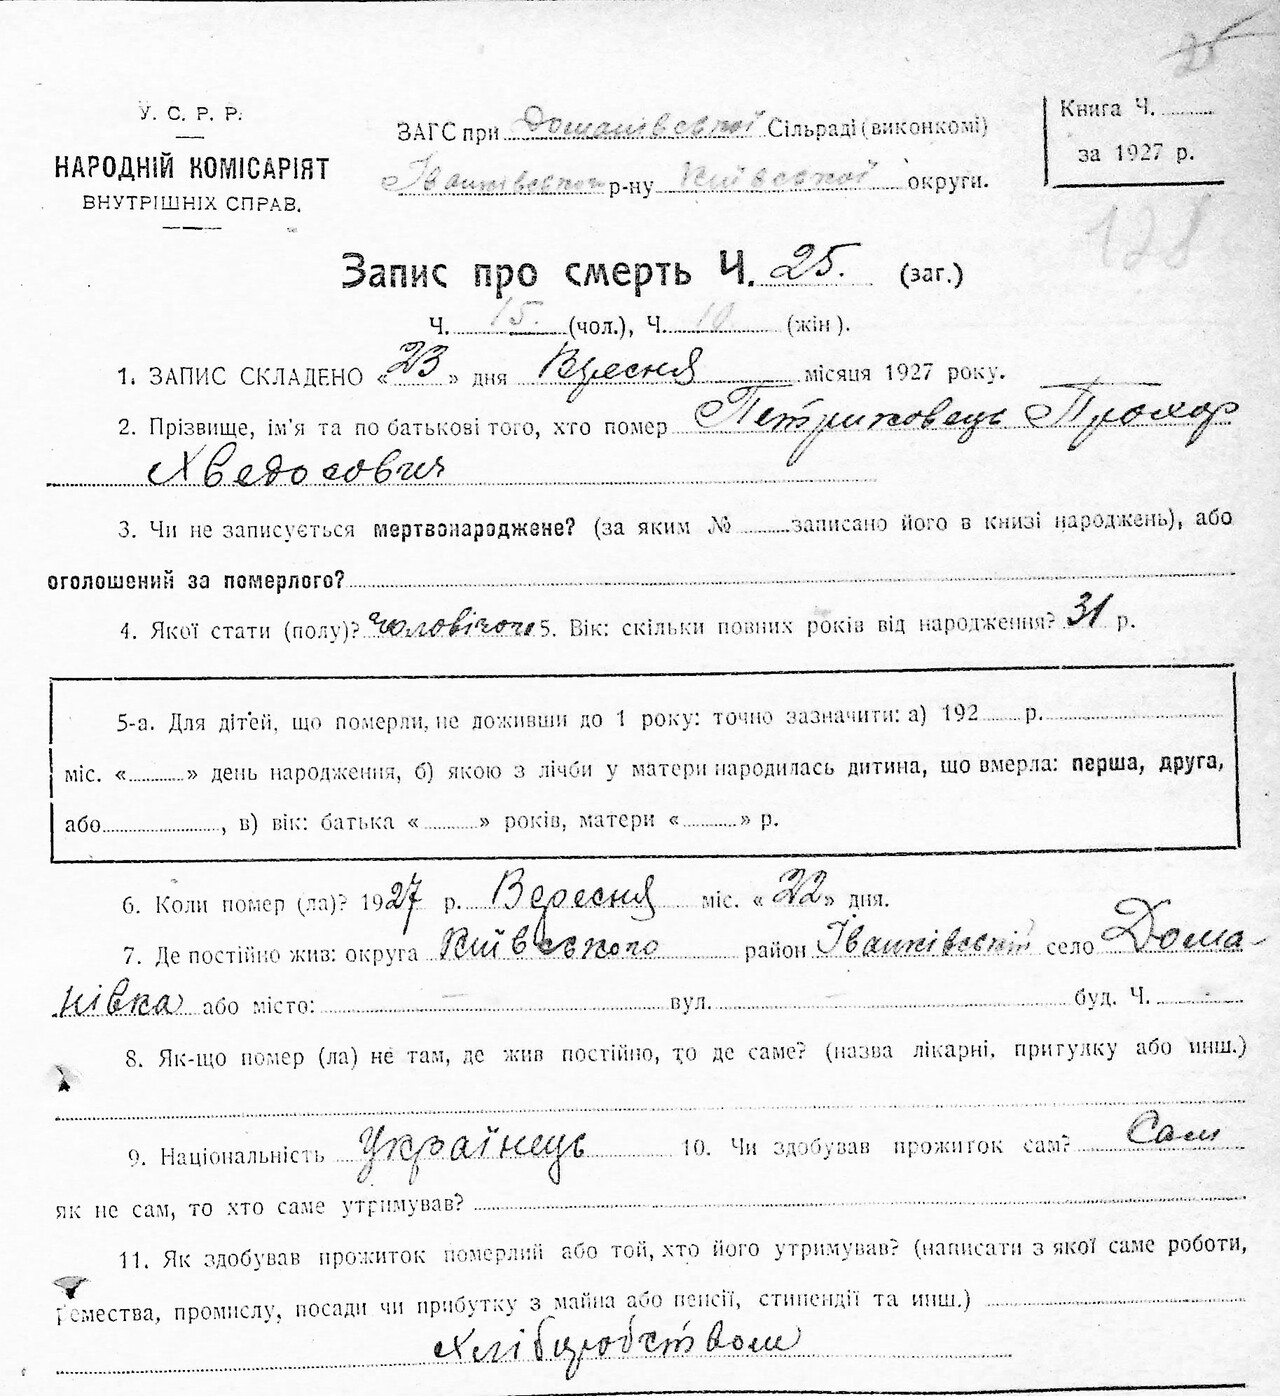 25
У. С. Р. Р.
НАРОДНІЙ КОМІСАРІЯТ
ВНУТРІШНІХ СПРАВ.
ЗАГС при Доманівської Сільраді (виконкомі)
Іванківського р-ну Київської округи.
Книга Ч.
за 1927 р.
128
Запис про смерть Ч. 25. (заг.)
Ч. 15. (чол.), Ч. 10. (жін).
1. ЗАПИС СКЛАДЕНО « 23 » дня Вересня місяця 1927 року.
2. Прізвище, ім'я та по батькові того, хто помер Петриковець Прохор
Хведосович
3. Чи не записується мертвонароджене? (за яким № записано його в книзі народжень), або
оголошений за померлого?
4. Якої стати (полу)? чоловічого 5. Вік: скільки повних років від народження? 31 р.
5-а. Для дітей, що померли, не доживши до 1 року: точно зазначити: а) 192 р.
міс. « » день народження, б) якою з лічби у матери народилась дитина, що вмерла: перша, друга,
або , в) вік: батька « » років, матери « » р.
6. Коли помер (ла)? 1927 р. Вересня міс. « 22 » дня.
7. Де постійно жив: округа Київського район Іванківській село Дома-
нівка або місто: — вул. — буд. Ч. -
8. Як-що помер (ла) не там, де жив постійно, то де саме? (назва лікарні, притулку або инш.)
9. Національність Українець 10. Чи здобував прожиток сам? Сам
як не сам, то хто саме утримував?
11. Як здобував прожиток померлий або той, хто його утримував? (написати з якої саме роботи,
ремества, промислу, посади чи прибутку з майна або пенсії, стипендії та инш.)
Хліборобством